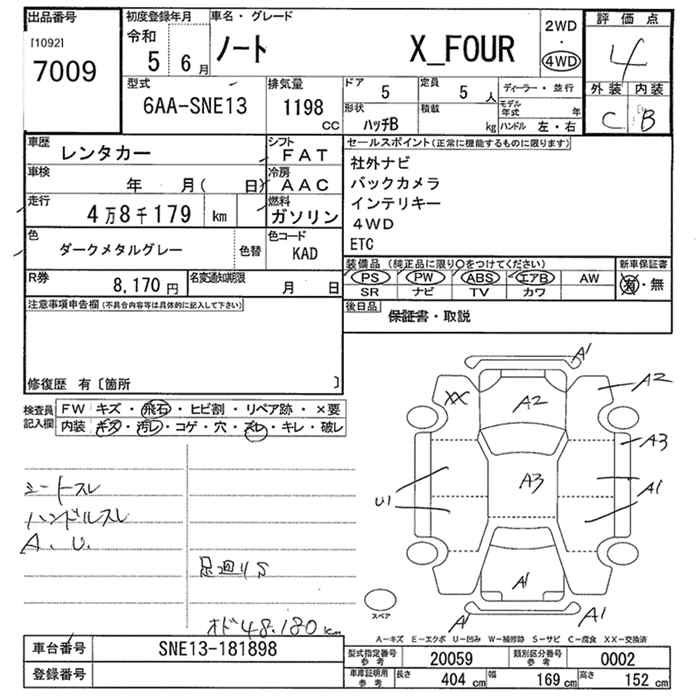 出品番号 初度登録年月 車名・グレード 2WD 評価点
[1092] 令和 ・ 4
7009 5 6月 ノート X_FOUR 4WD
型式 排気量 ドア 5 定員 5人 ディーラー・並行 外装 内装
6AA-SNE13 1198 cc 形状 ハッチB 積載 kg モデル年式 年 C B
ハンドル 左・右
車歴 レンタカー シフト FAT セールスポイント(正常に機能するものに限ります)
車検 年 月( 日) 冷房 AAC 社外ナビ
走行 4万8千179 km 燃料 ガソリン バックカメラ
インテリキー
色 ダークメタルグレー 色替 色コード KAD 4WD
ETC
R券 8,170円 名変通知期限 月 日 装備品(純正品に限り○をつけてください) 新車保証書
PS PW ABS エアB AW 有・無
SR ナビ TV カワ
注意事項申告欄(不具合内容等は具体的に記入して下さい) 後日品 保証書・取説
修復歴 有〔箇所 〕
検査員記入欄 FW キズ・飛石・ヒビ割・リペア跡・×要
内装 キズ・汚レ・コゲ・穴・スレ・キレ・破レ
シートスレ
ハンドルスレ
A.U.
足廻りS
オド48,180km
A1
XX A2 A2
A3
A3
U1 A1
A1
A1 A1
スペア
A-キズ E-エクボ U-凹み W-補修跡 S-サビ C-腐食 XX-交換済
車台番号 SNE13-181898 型式指定番号 参考 20059 類別区分番号 参考 0002
登録番号 車庫証明用 参考 長さ 404 cm 幅 169 cm 高さ 152 cm